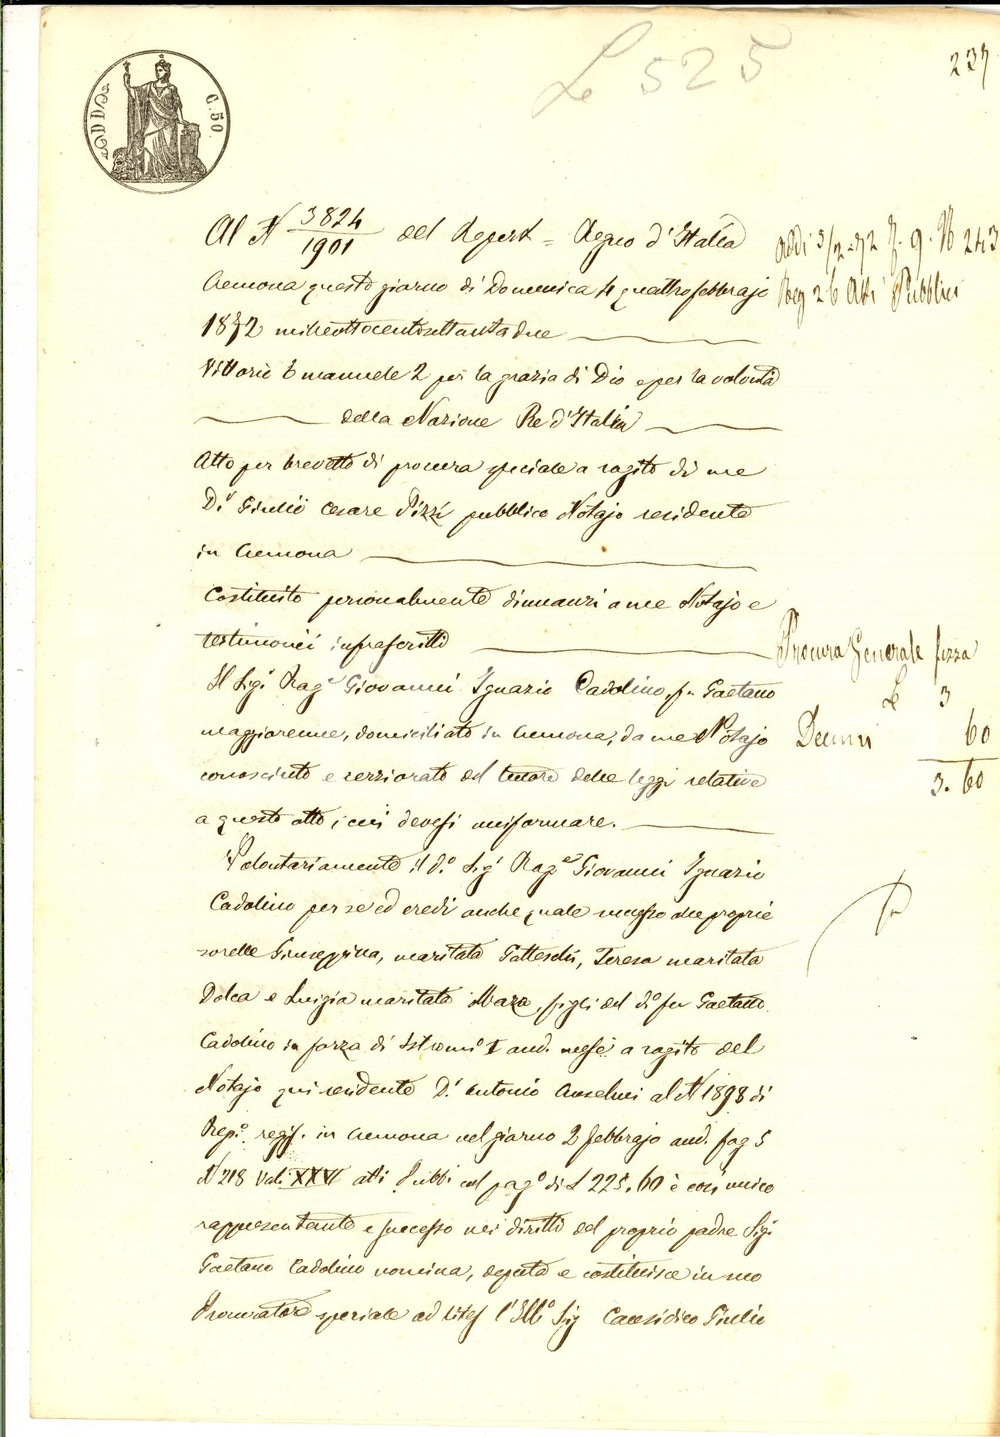 L 525
237
C. 50.
Al N 3824/1901 del Repert = Regno d'Italia
Addì 5/2-72 f. 9. N 243
Reg 26 Atti Pubblici
Cremona questo giorno di Domenica 4 quattro febbrajo
1872 milleottocentosettantadue
Vittorio Emanuele 2 per la grazia di Dio e per la volontà
della Nazione Re d'Italia
Atto per brevetto di procura speciale a rogito di me
Dr Giulio Cesare Pizzi pubblico Notajo residente
in Cremona
Costituito personalmente dinnanzi a me Notajo e
testimonii infrascritti
Procura Generale fissa
L 3
Il Sigr Ragre Giovanni Ignazio Cadolino, fu Gaetano
maggiorenne, domiciliato in Cremona, da me Notajo
Decimi 60
3. 60
conosciuto e cerziorato del tenore delle leggi relative
a questo atto, cui devesi uniformare.
Volontariamente il do Sigr Ragre Giovanni Ignazio
Cadolino per se ed eredi anche quale successo alle proprie
sorelle Giuseppina, maritata Tatteschi, Teresa maritata
Dolca e Luigia maritata Maza, figli del do fu Gaetano
Cadolino in forza di Istromo 1 and. mese a rogito del
Notajo qui residente Dr Antonio Anselmi al N 1898 di
Repo. regis. in Cremona nel giorno 2 febbrajo and. fog 5
N 218 Vol. XXVI atti Pubbi col pago di L 225.60 è così unico
rappresentante e successo nei diritti del proprio padre Sigr
Gaetano Cadolino nomina, deputa e costituisce in suo
Procuratore speciale ad lites l'Illo Sig Causidico Giulio